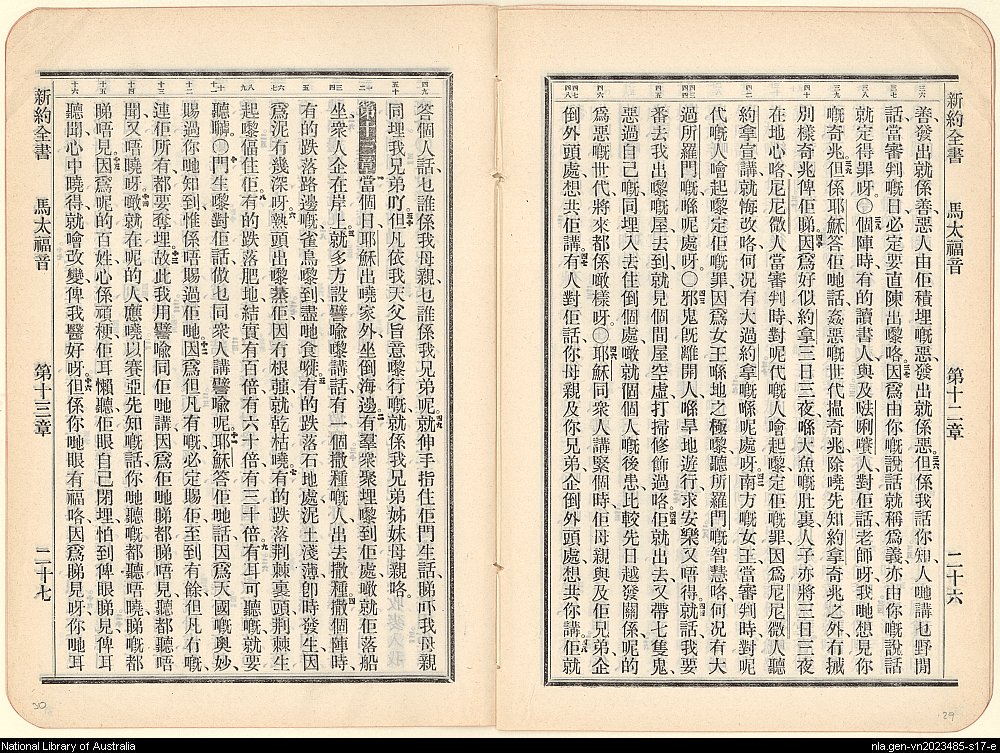 新約全書 馬太福音 第十二章 二十六
善發出就係善惡人由佢積埋嘅惡發出就係惡但係我話你知人哋講乜野閒
話當審判嘅日必定要直陳出嚟咯因爲由你嘅說話就稱爲義亦由你嘅說話
就定得罪呀〇個陣時有的讀書人與及𠵽唎㘔人對佢話老師呀我哋想見你
嘅奇兆但係耶穌答佢哋話姦惡嘅世代揾奇兆除嘵先知約拿奇兆之外有𢬿
別樣奇兆俾佢睇因爲好似約拿三日三夜喺大魚嘅肚裏人子亦將三日三夜
在地心咯尼尼微人當審判時對呢代嘅人會起嚟定佢嘅罪因爲尼尼微人聽
約拿宣講就悔改咯何况有大過約拿嘅喺呢處呀南方嘅女王當審判時對呢
代嘅人會起嚟定佢嘅罪因爲女王喺地之極嚟聽所羅門嘅智慧咯何况有大
過所羅門嘅喺呢處呀〇邪鬼旣離開人喺旱地遊行求安樂又唔得就話我要
番去我出嚟嘅屋去到就見個間屋空虛打掃修飾過咯佢就出去又帶七隻鬼
惡過自己嘅同埋入去住倒個處噉就個個人嘅後患比較先日越發關係呢的
爲惡嘅世代將來都係噉樣呀〇耶穌同衆人講緊個時佢母親與及佢兄弟企
倒外頭處想共佢講有人對佢話你母親及你兄弟企倒外頭處想共你講佢就
新約全書 馬太福音 第十三章 二十七
答個人話乜誰係我母親乜誰係我兄弟呢就伸手指住佢門生話睇吓我母親
同埋我兄弟吖但凡依我天父旨意嚟行嘅就係我兄弟姊妹母親咯
第十三章當個日耶穌出嘵家外坐倒海邊有羣衆衆埋嚟到佢處噉就佢落船
坐衆人企在岸上就多方設譬喻嚟講話有一個撒種嘅人出去撒種撒個陣時
有的跌落路邊嘅雀鳥嚟到盡哋食嘵有的跌落石地處泥土淺薄卽時發生因
爲泥有幾深呀熱頭出嚟藥佢因冇根就乾枯嘵有的跌落荆棘裏頭荆棘生
起嚟逼住佢有的跌落肥地結實有百倍有六十倍有三十倍有耳可聽嘅就要
聽嚹〇門生嚟對佢話做乜同衆人講譬喻呢耶穌答佢哋話因爲天國嘅奧妙
賜過你哋知到惟係唔賜過佢哋因爲但凡有嘅必定賜佢至到有餘但凡冇嘅
連佢所有都要奪埋故此我用譬喻同佢哋講因爲佢哋睇都睇唔見聽都聽唔
聞又唔曉呀噉就在呢的人應嘵以賽亞先知嘅話你哋聽嘅都聽唔曉睇嘅都
睇唔見因爲呢的百姓心係頑梗佢耳懶聽佢眼自己閉埋怕到俾眼睇見俾耳
聽聞心中曉得就會改變俾我醫好呀但係你哋眼有福咯因爲睇見呀你哋耳
30
29
National Library of Australia
nla.gen-vn2023485-s17-e